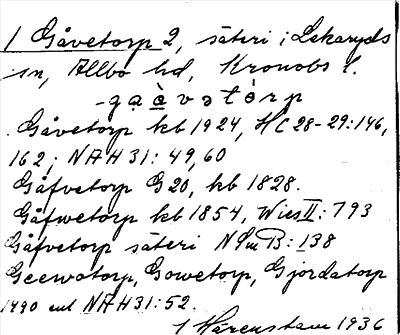 1 Gåvetorp 2, säteri i Lekaryds
sn, Allbo hd, Kronobs l.
-gạàvstòrp
Gåvetorp kb 1924, HC 28-29:146,
162; NAH31: 49,60
Gåfvetorp G20, kb 1828.
Gåfwetorp kb 1854, Wies II: 793
Gåfvetorp säteri NSmB:138
Geewatorp, Gowetorp, Gjordatorp
1490 enl NAH31:52.
1 Hårenstam 1936